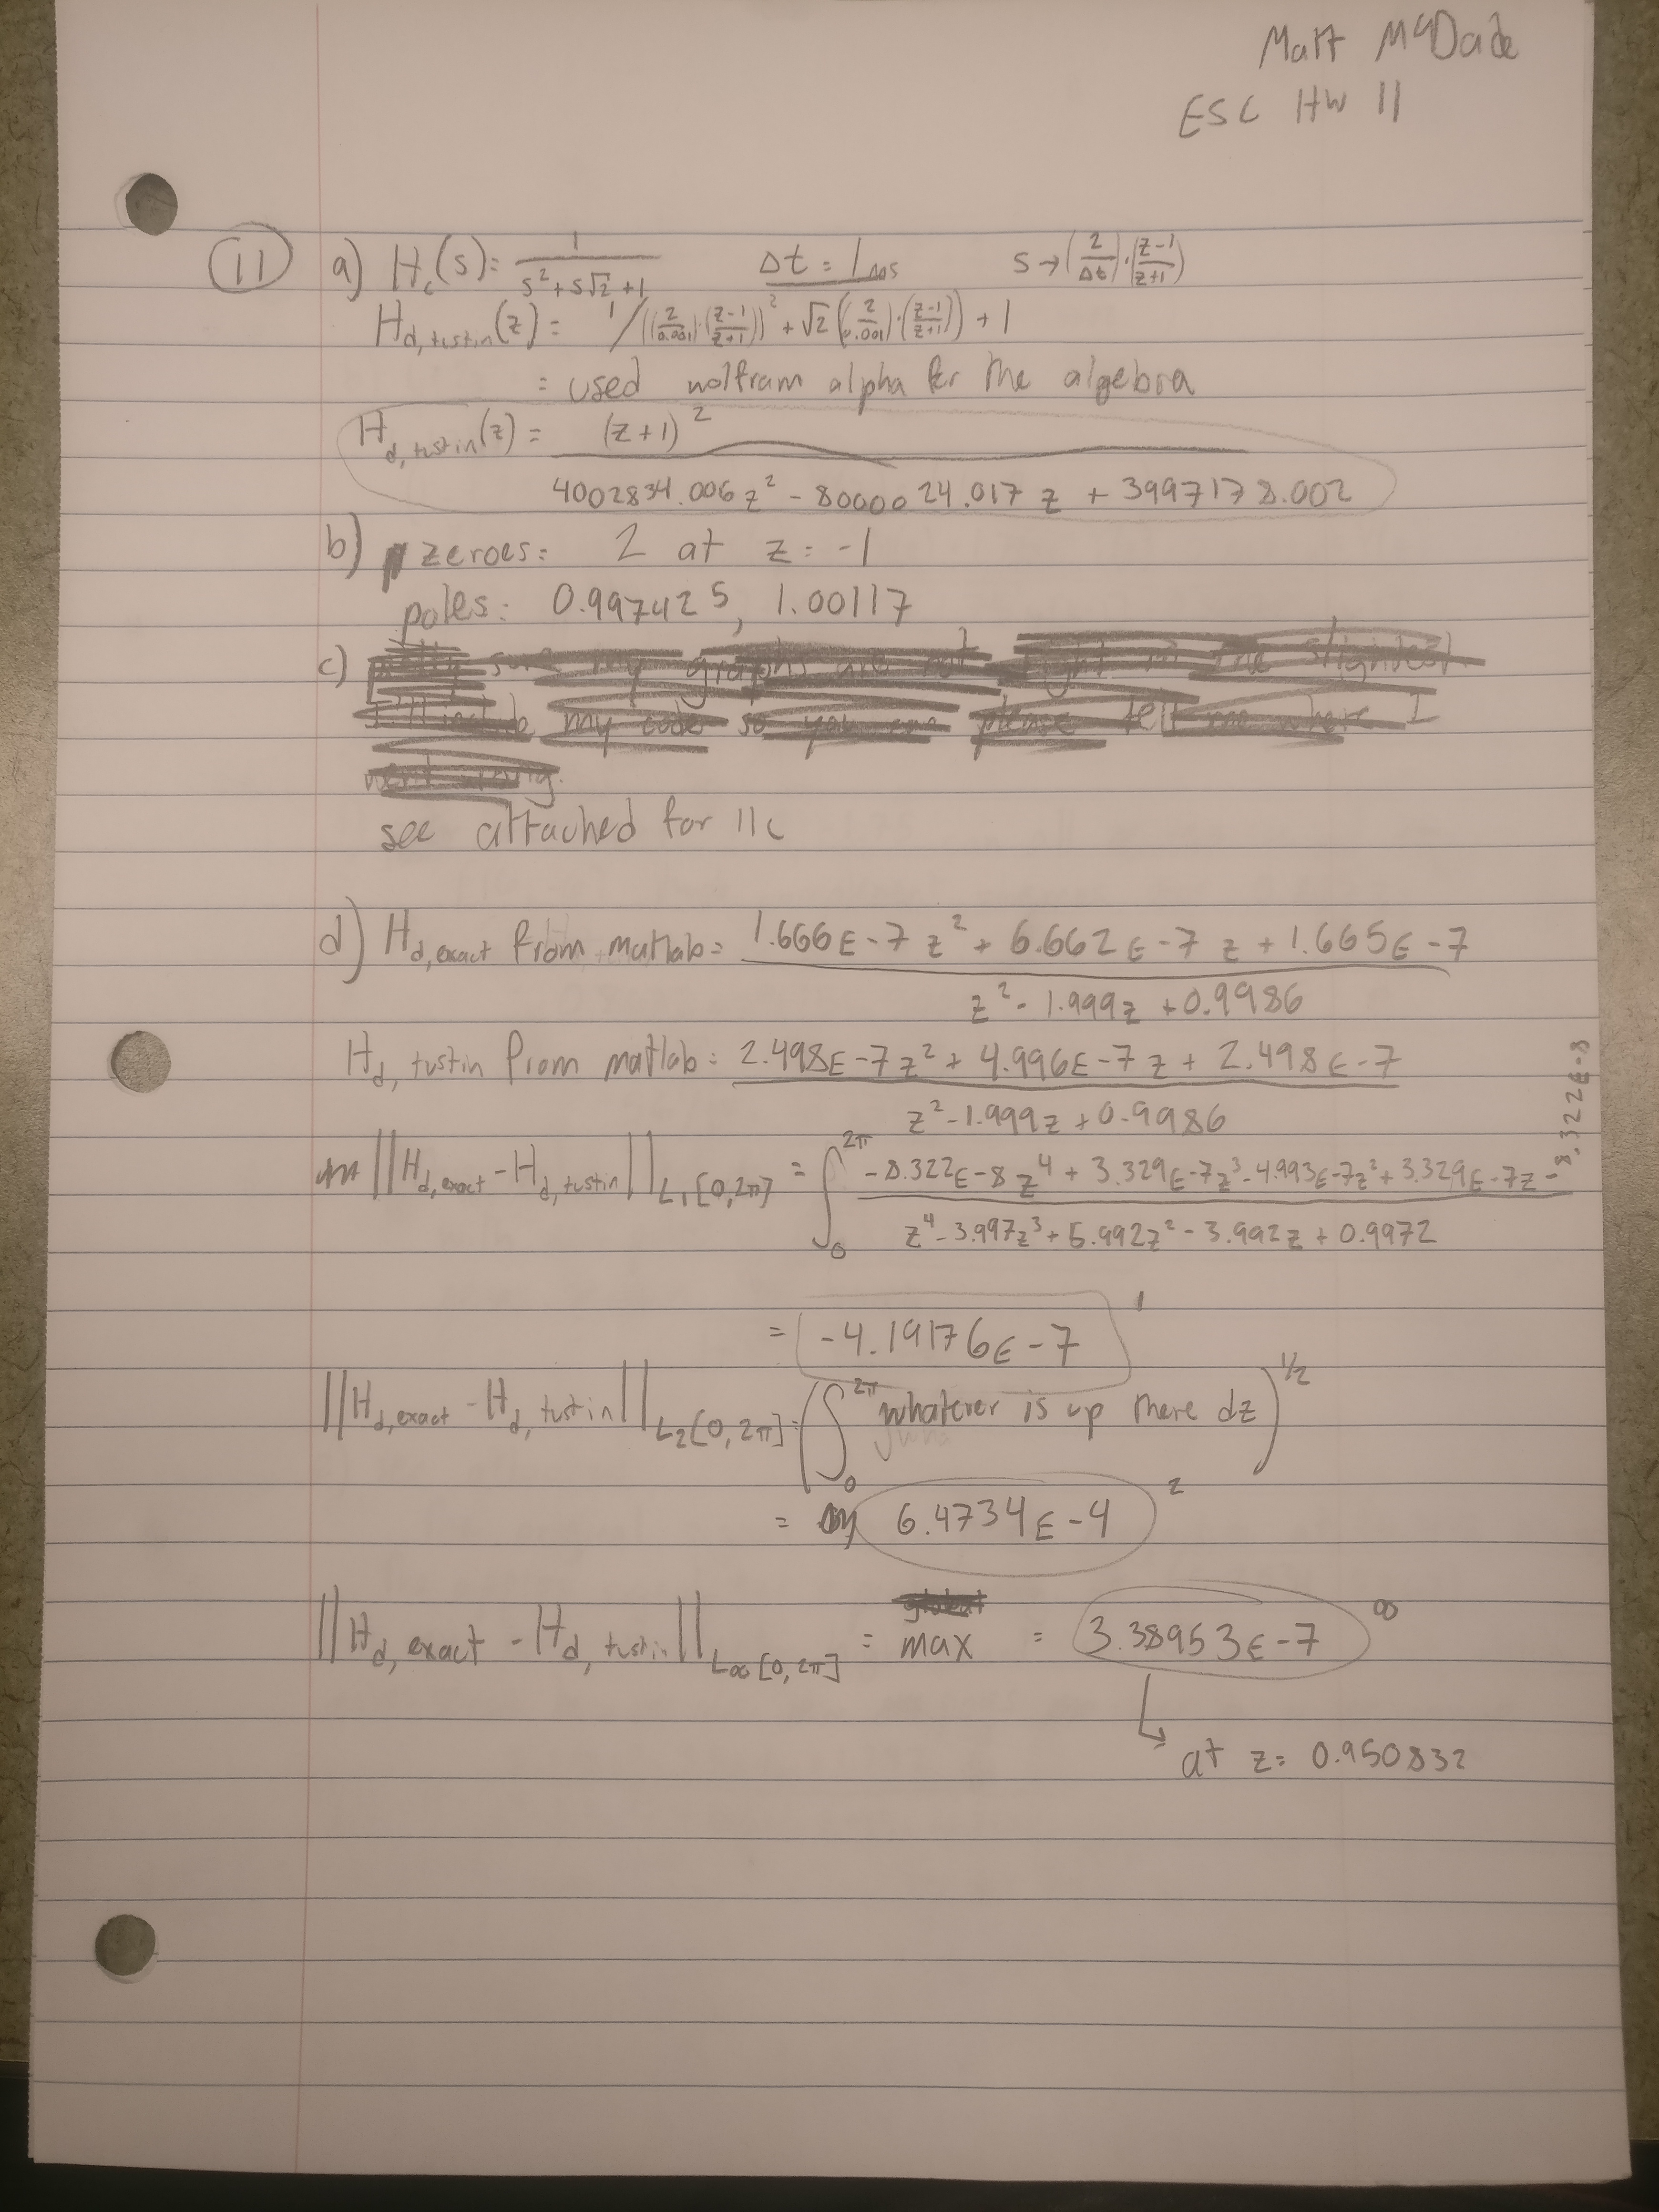 Matt McDade
ESC HW 11
11 a) H_c(s) = 1/(s² + s√2 + 1) Δt = 1ms s → (2/Δt)·(z-1/z+1)
H_d,tustin(z) = 1/((2/0.001)·(z-1/z+1))² + √2((2/0.001)·(z-1/z+1)) + 1
= used wolfram alpha for the algebra
H_d,tustin(z) = (z+1)² / 4002834.006z² - 8000024.017z + 3997178.002
b) zeroes: 2 at z = -1
poles: 0.997425, 1.00117
c) pretty sure my graphs are not right in the slightest
I'll include my code so you can please tell me where I
went wrong.
see attached for 11c
d) H_d,exact from matlab = 1.666E-7z² + 6.662E-7z + 1.665E-7 / z² - 1.999z + 0.9986
H_d,tustin from matlab = 2.498E-7z² + 4.996E-7z + 2.498E-7 / z² - 1.999z + 0.9986
||H_d,exact - H_d,tustin||_L₁[0,2π] = ∫₀^2π -8.322E-8z⁴ + 3.329E-7z³ - 4.993E-7z² + 3.329E-7z - 8.322E-8 / z⁴ - 3.997z³ + 5.992z² - 3.992z + 0.9972
= -4.19176E-7 1
||H_d,exact - H_d,tustin||_L₂[0,2π] = (∫₀^2π whatever is up there dz)^1/2
= 6.4734E-4 2
||H_d,exact - H_d,tustin||_L∞[0,2π] = global max = 3.38953E-7 ∞
↳ at z = 0.950832